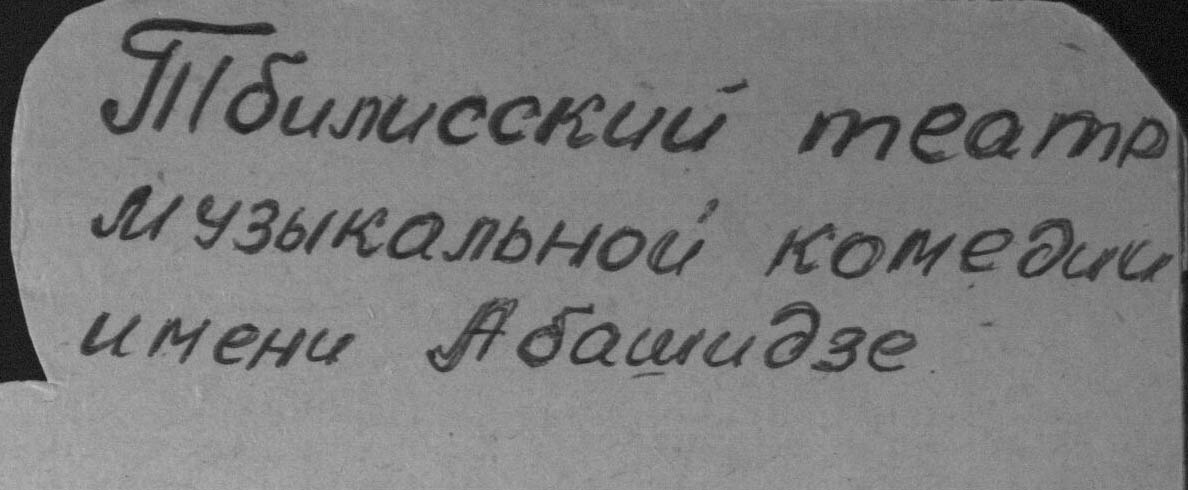 Тбилисский театр
музыкальной комедии
имени Абашидзе